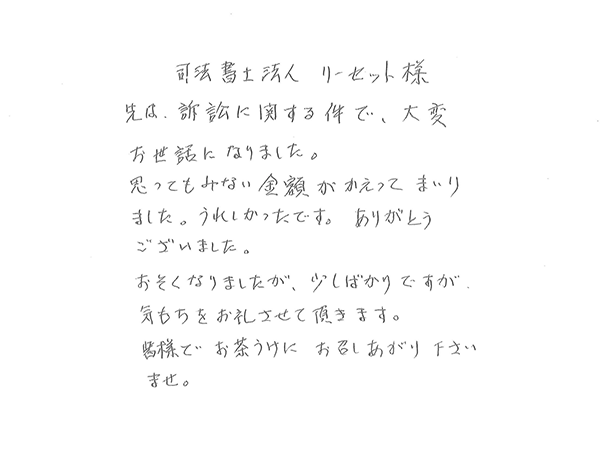 司法書士法人 リーセット様
先は、訴訟に関する件で、大変
お世話になりました。
思ってもみない金額がかえってまいり
ました。うれしかったです。ありがとう
ございました。
おそくなりましたが、少しばかりですが、
気もちをお礼させて頂きます。
皆様でお茶うけにお召しあがり下さい
ませ。